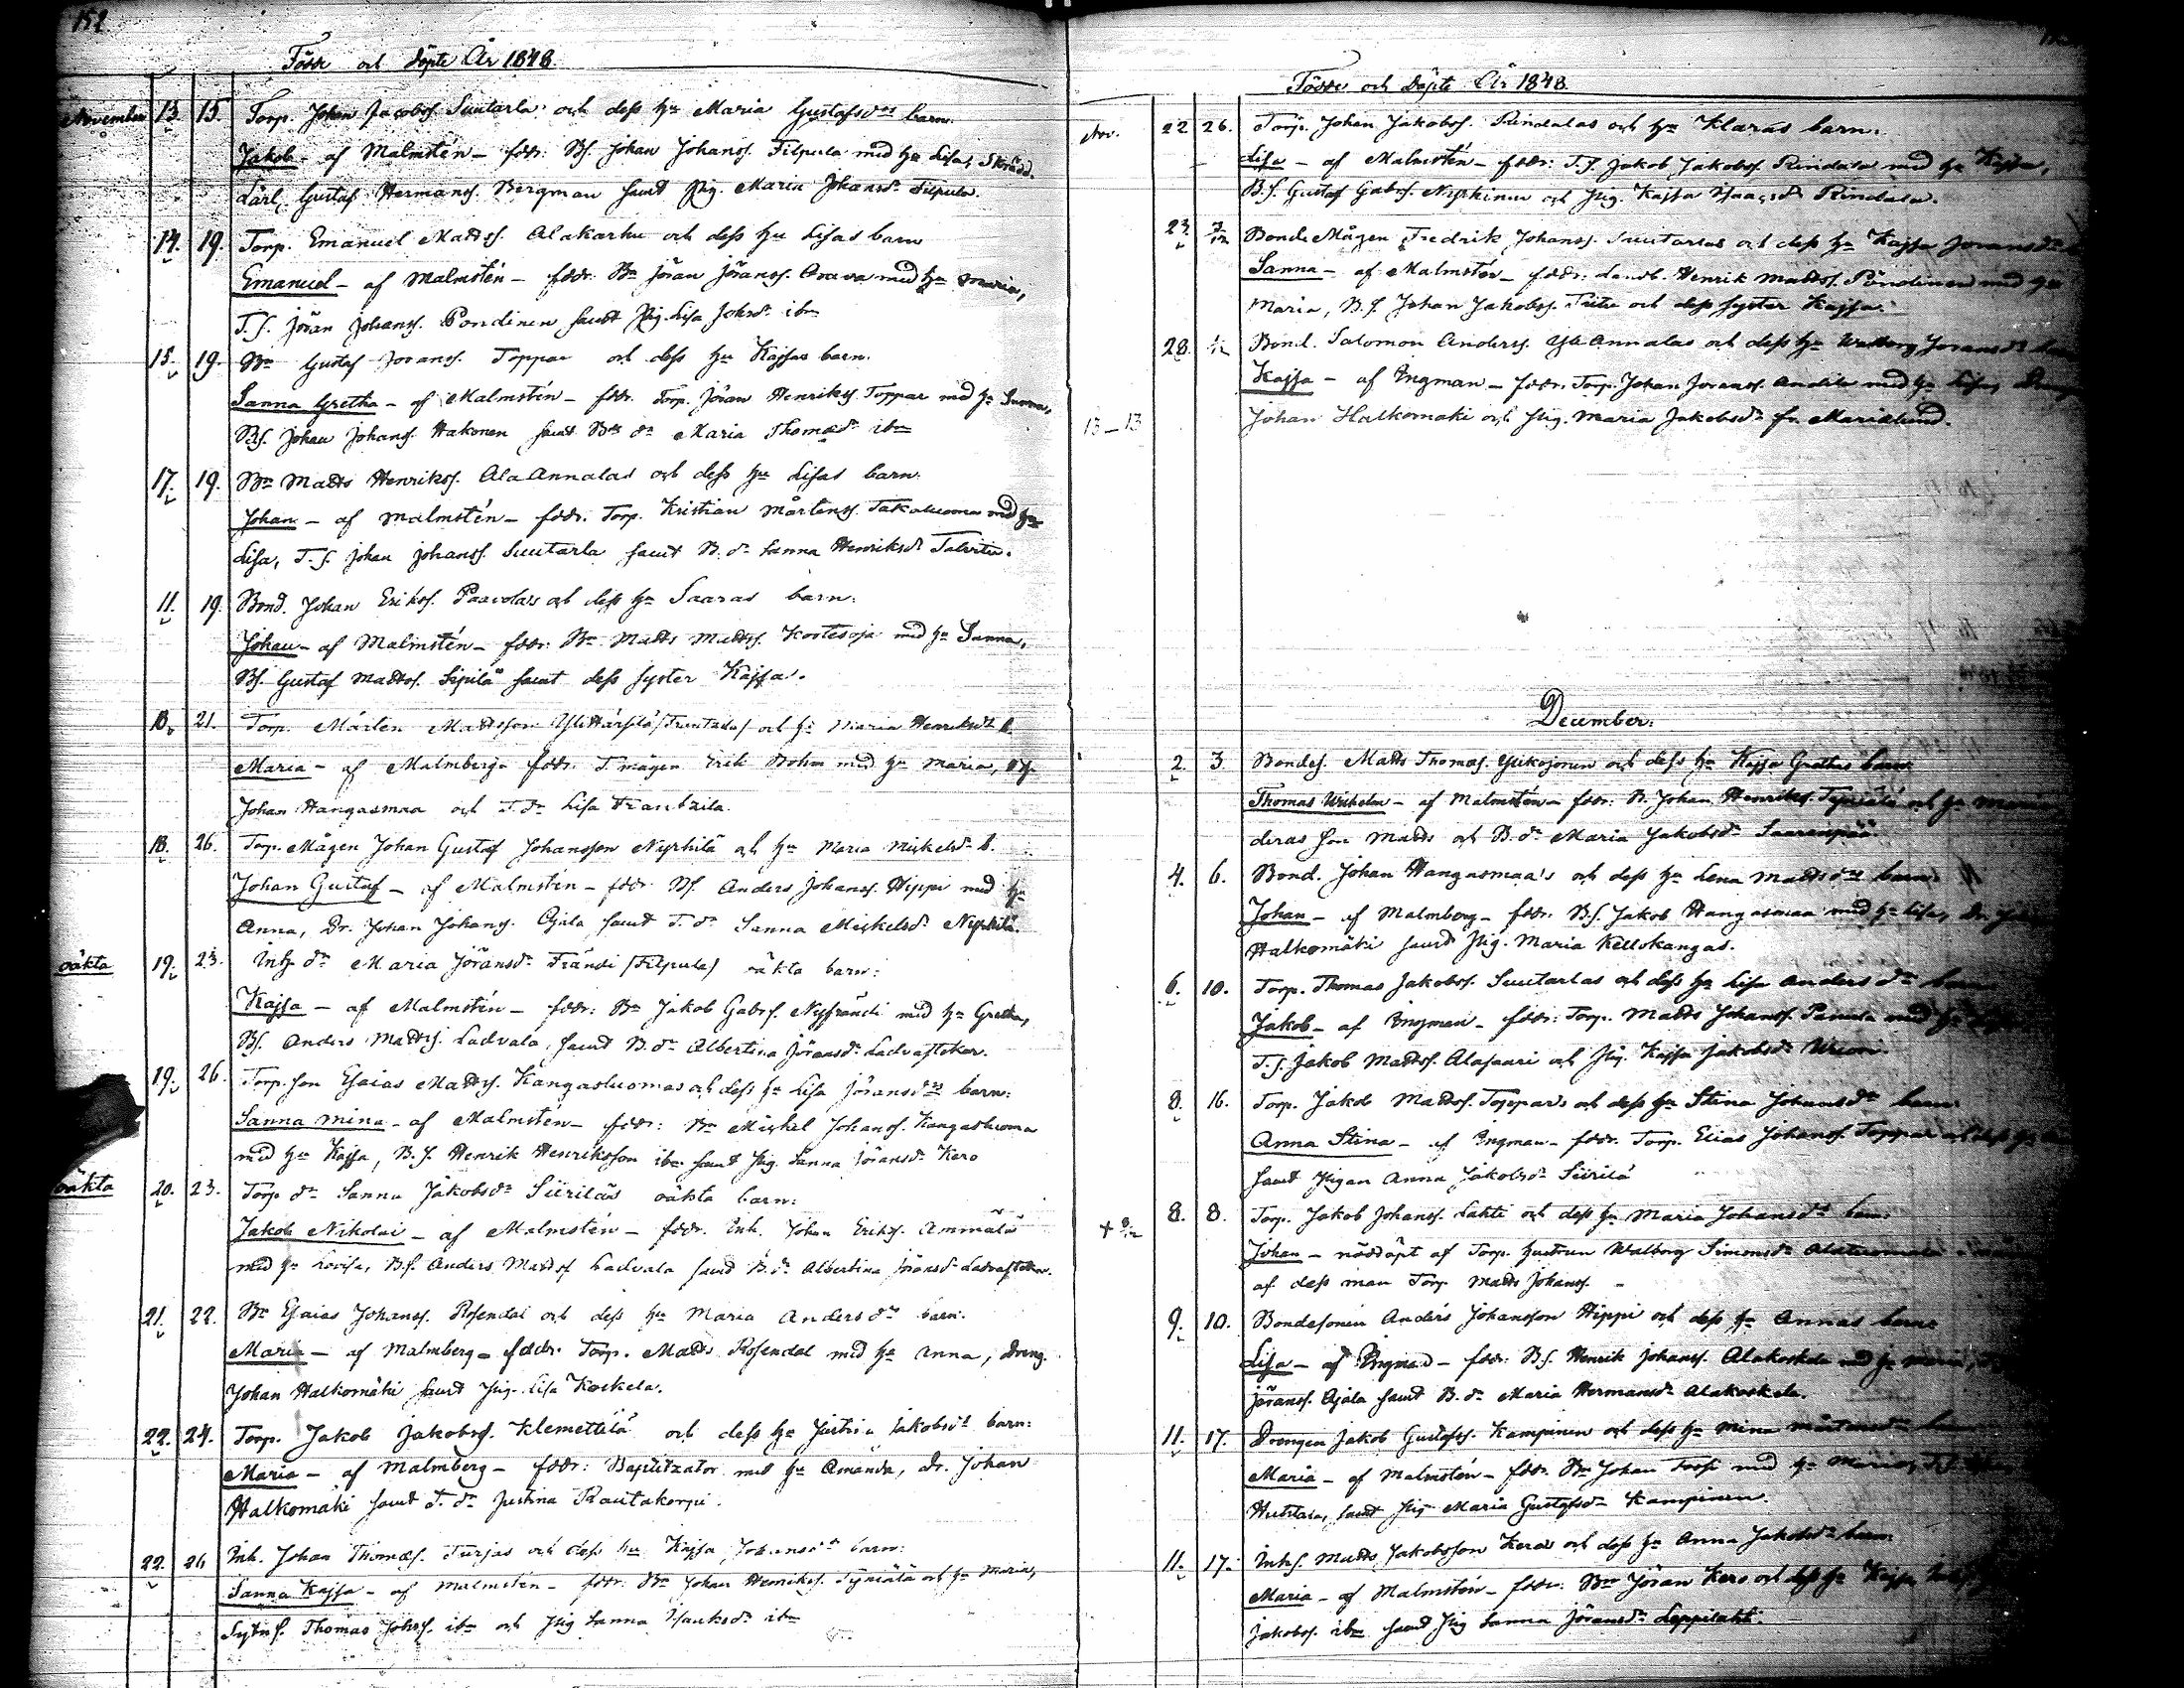 152
Födde och döpte År 1848.
November 13. 15. Torp. Johan Jacobss. Suutarla och dess hu Maria Gustafsdrs barn.
Jakob - af Malmstén - fddr: Bs. Johan Johanss. Filpula med hu Lisa, Skrädd.
Lärl. Gustaf Hermanss. Bergman samt Pig. Maria Johansdr Filpula.
14. 19. Torp. Emanuel Mattss. Alakarhu och dess hu Lisas barn
Emanuel - af Malmstén - fddr: Bn Jöran Jöranss. med hu Maria,
T.S. Jöran Johanss. Pondinen samt Pig. Lisa Johsdr ibm
15. 19. Bn Gustaf Joranss. Toppar och dess hu Kajsas barn.
Sanna Gretha - af Malmstén - fddr. Torp. Jöran Henrikss. Toppar med hu Sanna,
Bs. Johan Johanss. Hakonen samt Bds dr Maria Thomædr ibm
17. 19. Bn Matts Henrikss. Ala Annalas och dess hu Lisas barn.
Johan - af Malmstén - fddr. Torp. Kristian Mårtenss. Takaluoma med hu
Lisa, T.S. Johan Johanss. Suutarla samt B. dr Sanna Henriksdr Talvitie.
11. 19. Bond. Johan Erikss. Paavolas och dess hu Saaras barn.
Johan - af Malmstén - fddr: Bn Matts Mattss. Kortesoja med hu Sanna,
Bs. Gustaf Mattss. Sipilä samt dess syster Kajsa.
18. 21. Torp. Mårten Mattsson och hu Maria Henriksdr b.
Maria - af Malmberg - fddr. T.mågen Erik Bohm med hu Maria,
Johan Hangasmaa och T. dr Lisa
18. 26. Torp. Mågen Johan Gustaf Johansson Nyrhilä och hu Maria Mickelsdr b.
Johan Gustaf - af Malmstén - fddr Bs. Anders Johanss. Hippi med hu
Anna, Dr. Johan Johanss. Ojala samt T. dr Sanna Mickelsdr Nyrhilä.
oäkta 19. 23. Inh dr Maria Jöransdr Frändi /Filpula/ oäkta barn:
Kajsa - af Malmstén - fddr: Bn Jakob Gabrs. Nyfrändi med hu Gretha,
Bs. Anders Mattss. Ladvala, samt B. dr Albertina Jöransdr
19. 26. Torp. son Esaias Mattss. Kangasluomas och dess hu Lisa Jöransdrs barn:
Sanna Mina - af Malmstén - fddr: Bn Mickel Johanss. Kangasluoma
med hu Kajsa, B.S. Henrik Henriksson ibm samt Pig. Sanna Jöransdr Kero
oäkta 20. 23. Torp dr Sanna Jakobsdr Siiriläs oäkta barn:
Jakob Nikolai - af Malmstén - fddr. Inh. Johan Erikss. Ammälä
med hu Lovisa, B.S. Anders Mattss Ladvala samt B. dr Albertina Jöransdr
21. 22. Bn Esaias Johanss. Rosendal och dess hu Maria Anders drs barn:
Maria - af Malmberg - fddr. Torp. Matts Rosendal med hu Anna, Dreng.
Johan Halkomäki samt Pig. Lisa Koskela.
22. 24. Torp. Jakob Jakobss. Klemettilä och dess hu Justina Jakobsdrs barn:
Maria - af Malmberg - fddr: Baptizator med hu Amanda, Dr. Johan
Halkomäki samt T. dr Justina Rautakorpi.
22. 26 Inh. Johan Thomæs. Turjas och dess hu Kajsa Johansdrs barn:
Sanna Kajsa - af Malmstén - fddr: Bn Johan Henrikss. och hu Maria,
Thomas Johss. ibm och Pig Sanna Isaksdr ibm
Födde och döpte År 1848.
Nov. 22 26. Torp. Johan Jakobss. Rindalas och hu Klaras barn.
Lisa - af Malmstén - fddr: T.S. Jakob Jakobss. Rindala med hu Kajsa,
B.S. Gustaf Gabrs. och Pig. Kajsa Isaacsdr Rindala.
23. 3/12 Bonde Mågen Fredrik Johanss. Suutarlas och dess hu Kajsa Joransdrs
Sanna - af Malmstén - fddr: Landb. Henrik Mattss. Pöndinen med hu
Maria, B.S. Johan Jakobss. och dess syster Kajsa.
28. Bond. Salomon Anderss. Yli Annalas och dess hu Walborg Joransdrs
Kajsa - af Ingman - fddr. Torp. Johan Joranss. Andila med hu Lisa,
13-13 Johan Halkomäki och Pig. Maria Jakobsdr fr. Marielund.
December.
2. 3 Bondes. Matts Thomæs. Ylikojonen och dess hu Kajsa Grethas barn
Thomas Wilhelm - af Malmstén - fddr: B. Johan Henrikss. och hu
deras son Matts och B. dr Maria Jakobsdr Saarenpää
4. 6. Bond. Johan Hangasmaa's och dess hu Lena Mattsdrs barn.
Johan - af Malmberg - fddr. B.S. Jakob Hangasmaa med hu Lisa, Dr.
Halkomäki samt Pig. Maria Kellokangas.
6. 10. Torp. Thomas Jakobss. Suutarlas och dess hu Lisa Anders drs
Jakob - af Ingman - fddr: Torp. Matts Johanss. Panula med hu
T.S. Jakob Mattss. Alasaari och Pig. Kajsa Jakobsdr
8. 16. Torp. Jakob Mattss. Toppars och dess hu Stina Johansdrs barn.
Anna Stina - af Ingman - fddr. Torp. Elias Johanss. Toppar och dess hu
samt Pigan Anna Jakobsdr Siirilä
+ 8/12 8. 8. Torp. Jakob Johanss. Lahti och dess hu Maria Johansdrs barn:
Johan - nöddöpt af Torp. hustrun Walborg Simonsdr
af dess man Torp Matts Johanss. -
9. 10. Bondesonen Anders Johansson Hippi och dess hu Annas barn.
Lisa - af Ingman - fddr: B.S. Henrik Johanss. Alakoskela med hu Maria,
Jöranss. Ojala samt B. dr Maria Hermansdr Alakoskela.
11. 17. Drengen Jakob Gustafss. Kampinen och dess hu Mina Mårtensdrs
Maria - af Malmstén - fddr. Bn Johan med hu Maria, T.S.
Huhtala, samt Pig Maria Gustafsdr Kampinen.
11. 17. Inhs. Matts Jakobsson Keros och dess hu Anna Jakobsdrs barn.
Maria - af Malmstén - fddr: Bn Jöran Kero och dess hu Kajsa
Jakobss. ibm samt Pig Sanna Jöransdr Leppilahti.